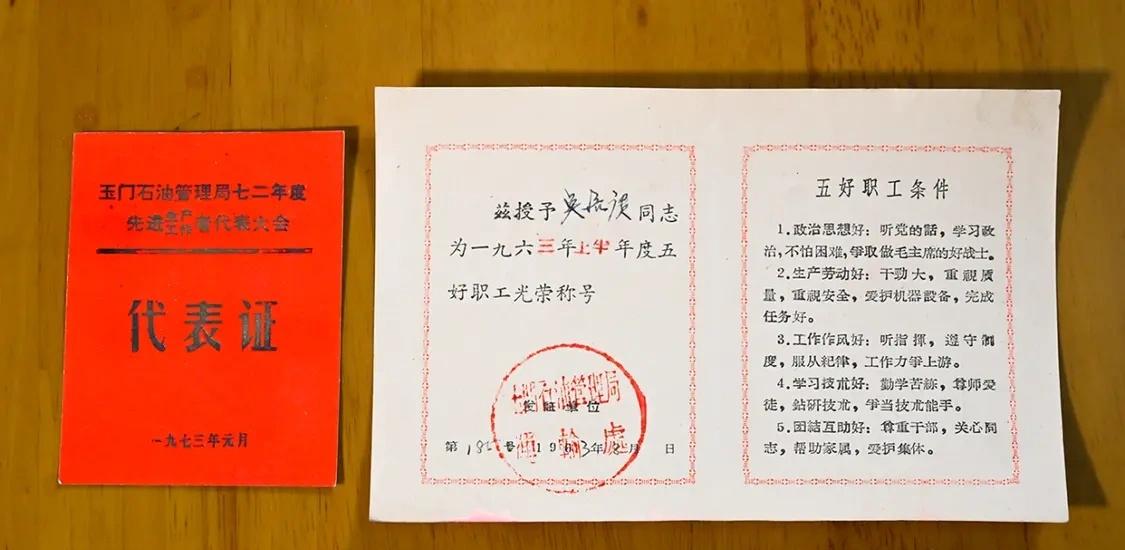 玉门石油管理局七二年度
先进生产工作者代表大会
代表证
一九七三年元月
兹授予吴振汉同志
为一九六三年上半年度五
好职工光荣称号
玉門石油管理局
運輸處
发証单位
第 号 1963年8月 日
五好职工条件
1.政治思想好：听党的話，学习政
治，不怕困难，爭取做毛主席的好战士。
2.生产劳动好：干劲大，重視质
量，重視安全，爱护机器設备，完成
任务好。
3.工作作风好：听指揮，遵守制
度，服从紀律，工作力爭上游。
4.学习技朮好：勤学苦練，尊师爱
徒，鉆研技朮，爭当技朮能手。
5.团結互助好：尊重干部，关心同
志，帮助家属，爱护集体。